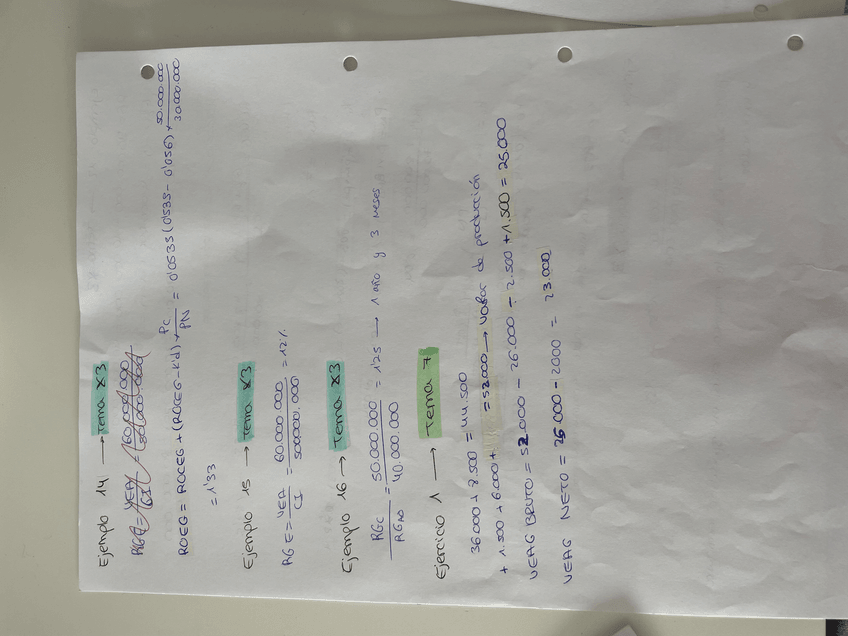 Ejemplo 14 → Tema 3
RGE = VEA / CI = 60.000.000 / 500.000.000
ROEG = ROCEG + (ROCEG - k'd) * PC / PN = 0'0533 (0'0533 - 0'056) * 50.000.000 / 30.000.000
= 1'33
Ejemplo 15 → Tema 3
RGE = VEA / CI = 60.000.000 / 500000.000 = 12%
Ejemplo 16 → Tema 3
RGC / RGAD = 50.000.000 / 40.000.000 = 1'25 → 1 año y 3 meses
Ejercicio 1 → Tema 7
36.000 + 8.500 = 44.500
+ 1.500 + 6.000 + = 52.000 → Valor de producción
VEAG BRUTO = 52.000 - 26.000 - 2.500 + 1.500 = 25.000
VEAG NETO = 25.000 - 2000 = 23.000